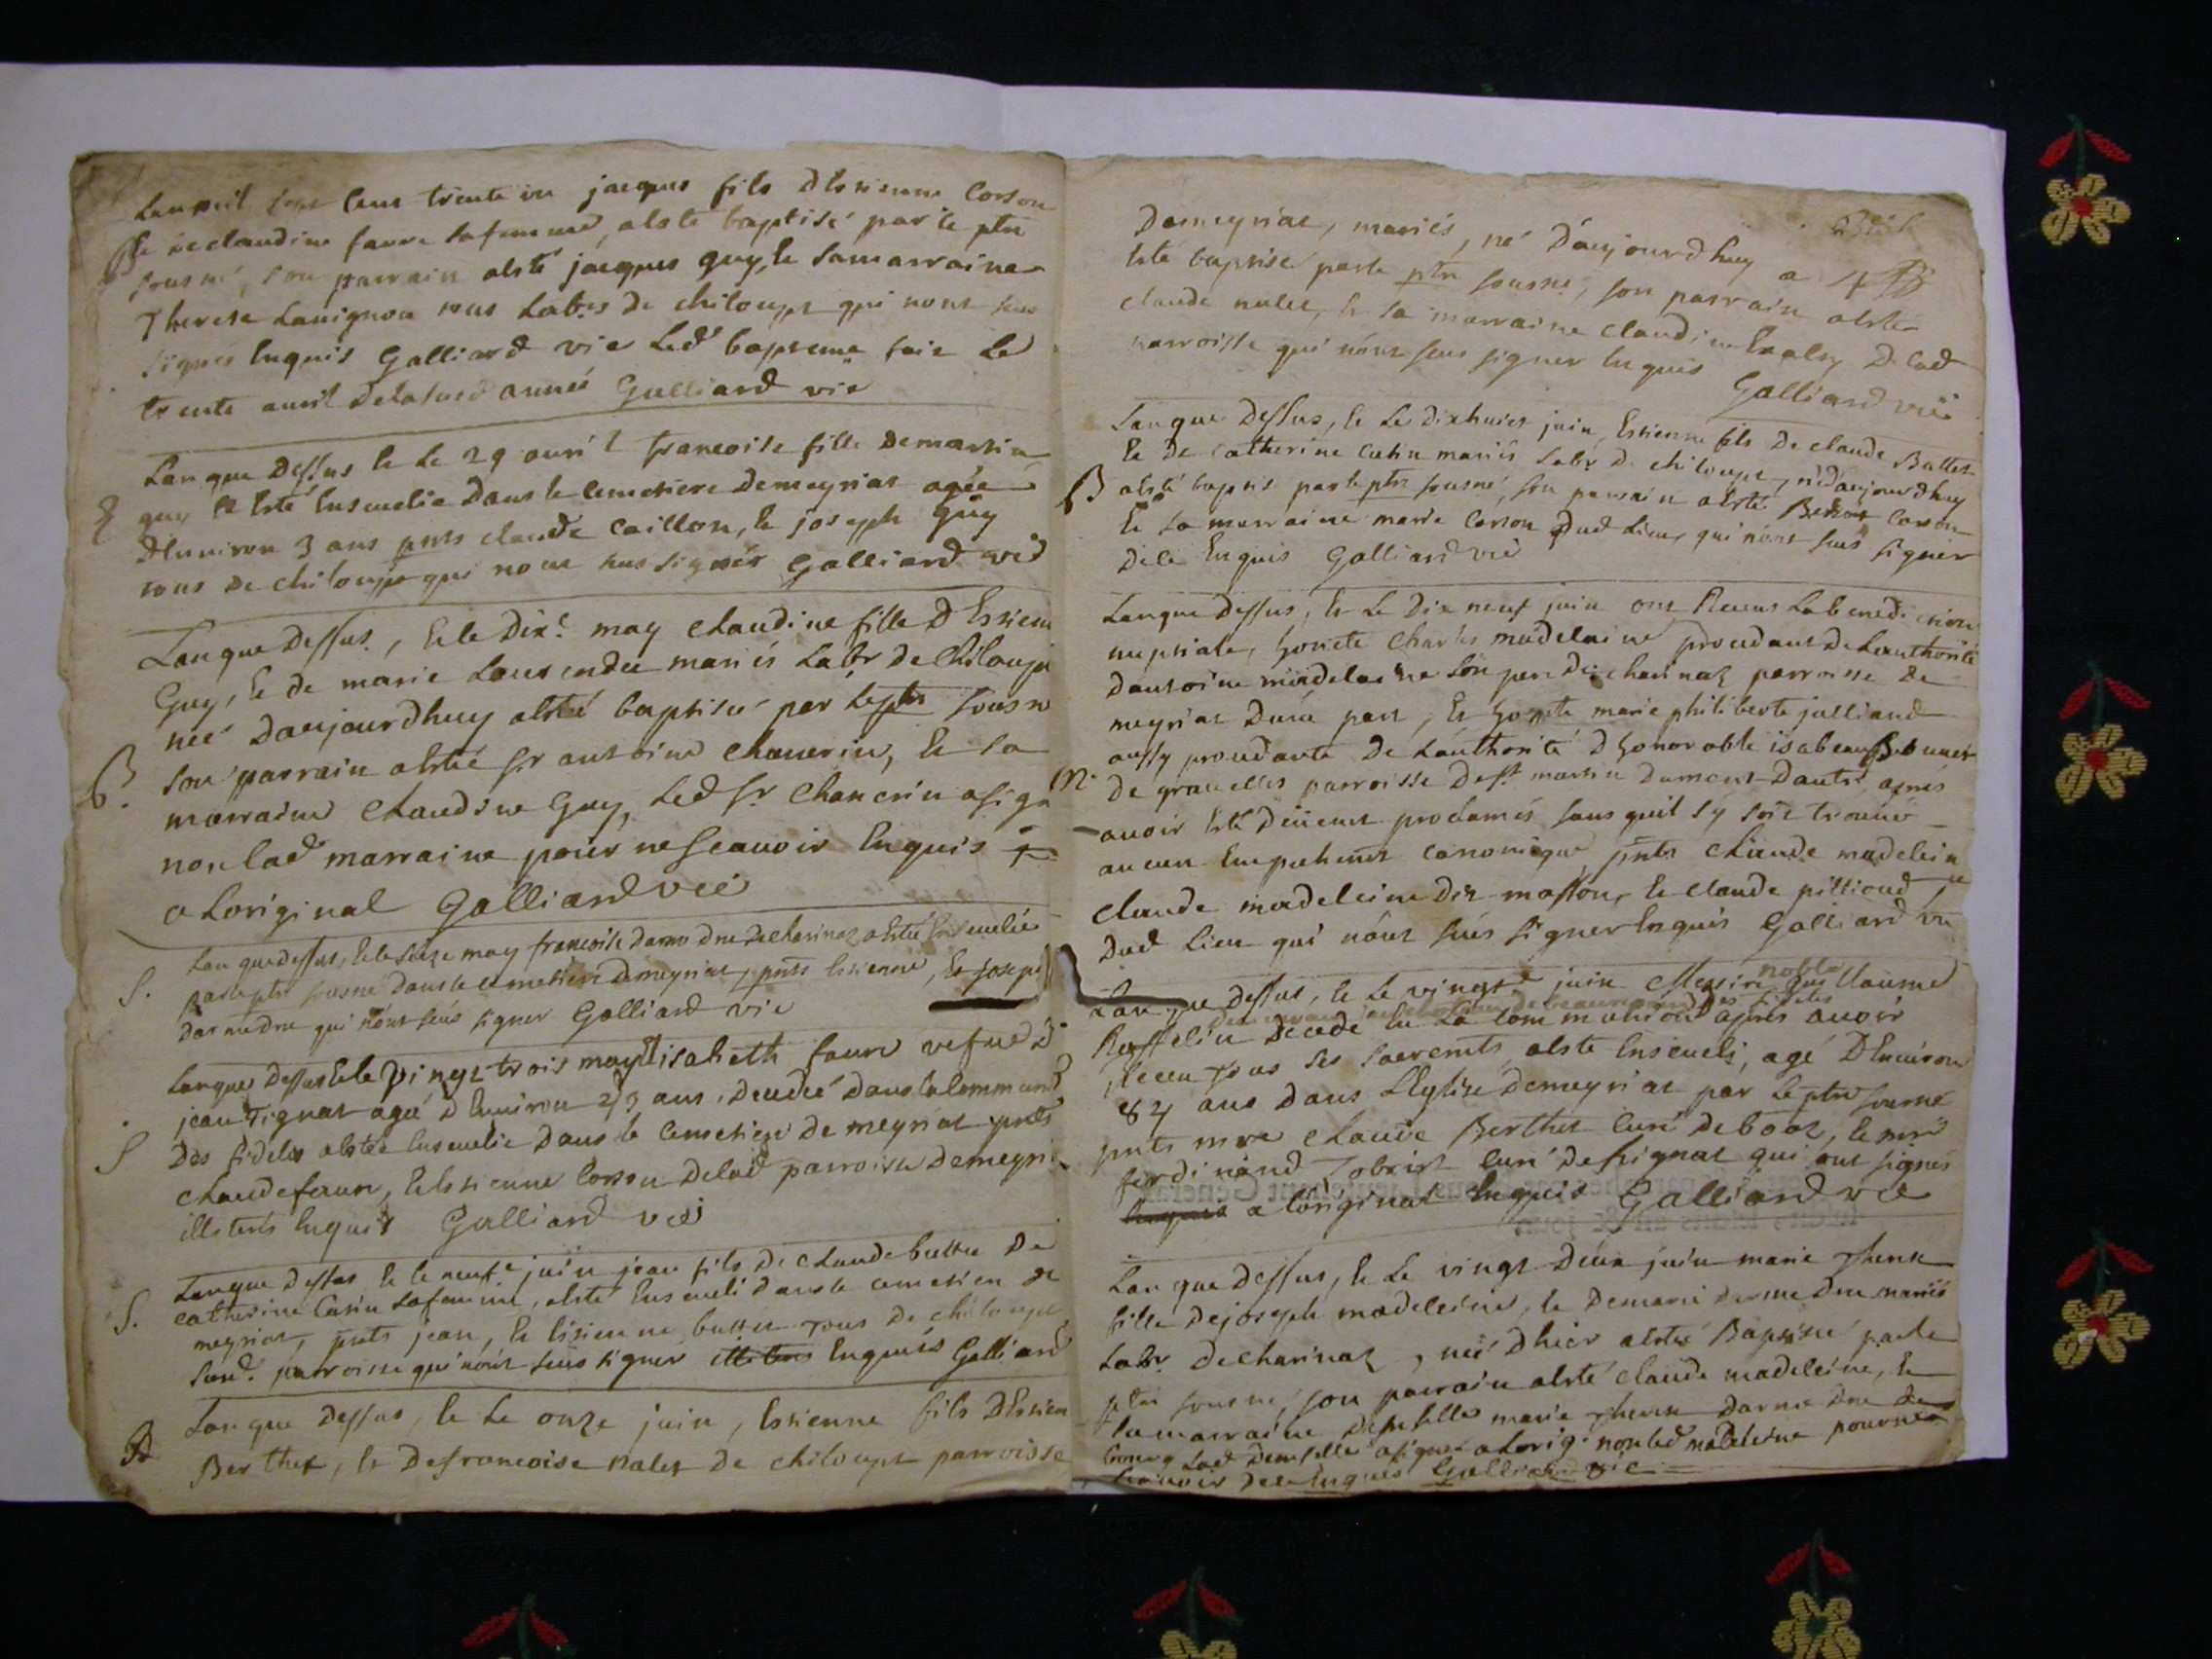 Lan mil sept cens trente un jacques fils dEstienne Corson
B et de claudine faure sa femme, a esté baptisé par le ptre
sousné, son parrain a esté jacques guy, et sa marraine
Therese Lauignon tous Labrs de chiloupt qui nont sceu
signés Enquis Galliard vic Led baptême fait Le
trente auril de la sud année Galliard vic
Lan que dessus et Le 29 auril francoise fille de martin
guy a esté Enseuelie dans le cemetiere de meyriat agée
dEnuiron 3 ans pnts claude caillon, et joseph guy
tous de chiloupt qui nont sceu signés Galliard vic
Lan que dessus, et le dix.e may claudine fille dEstienne
Guy, et de marie Lausendu mariés Labr de chiloupt
née daujourdhuy a esté baptisée par le ptre sousné
B. son parrain a esté sr antoine chanerin, et sa
marraine claudine Guy, Led sr chanerin a signé
non lad marraine pour ne sceauoir Enquis
a Loriginal Galliard vic
S. Lan que dessus, et le seize may francoise darmedru de charinaz a esté Enseuelie
par le ptre sousné dans le cemetiere de meyriat, pnts Estienne, et joseph
darmedru qui nont sceu signer Galliard vic
Lan que dessus et le vingt trois may Elisabeth faure vefue d
jean Tignat agée dEnuiron 23 ans, decedée dans la commun
S des fideles a esté Enseuelie dans le cemetiere de meyriat pnts
claude faure, et Estienne Corson de lad parroisse de meyri
illiterés Enquis Galliard vic
Lan que dessus et le neuf.e juin jean fils de claude buttet de
S. catherine Cusin sa femme, a esté Enseueli dans le cemetiere de
meyriat, pnts jean, et Estienne buttet tous de chiloupt
sud. parroisse qui nont sceu signer illiteres Enquis Galliard
Lan que dessus, et Le onze juin, Estienne fils dEstien
B Berthet, et de francoise nalet de chiloupt parroisse
de meyriat, mariés, né daujourdhuy a
esté baptisé par le ptre sousné, son parrain a esté
claude nalet, et sa marraine claudine de lad
parroisse qui nont sceu signer Enquis
Galliard vic
Lan que dessus, et Le dixhuict juin, Estienne fils de claude Buttet
et de catherine cusin mariés Labr de chiloupt, né daujourdhuy
B a esté baptisé par le ptre sousné, son parrain a esté Benoit Corson
et sa marraine marie Corson dud Lieu, qui nont sceu signer
de ce Enquis Galliard vic
Lan que dessus, et Le dix neuf juin ont Receus La benediction
nuptiale, honete charles madelaine procedant de Lauthorité
dantoine madelaine son pere de charinaz parroisse de
meyriat dune part, et honete marie philiberte julliand
aussy procedante de Lauthorité dhonorable isabeau
M. de grauelles parroisse de st martin dumont dautre, apres
auoir Esté deüement proclamés sans quil sy soit trouué
aucun Empechemt canonique pnts claude madelein
claude madeleine dit masson, et claude pillioud,
dud lieu qui nont sceu signer Enquis Galliard vic
Lan que dessus, et Le vingt.e juin Messire noble Guillaume
Ruffelin decedé en La communion des fideles apres auoir
Receu tous ses sacremts, a esté Enseueli, agé dEnuiron
84 ans dans LEglise de meyriat par le ptre sousné
pnts mre claude Berthet curé de boaz, et mre
ferdinand Jobrist curé de frignat qui ont signés
Enquis a Loriginal Enquis Galliard vic
Lan que dessus, et Le vingt deux juin marie Therese
fille de joseph madeleine, et de marie darmedru mariés
Labr de charinaz, née dhier a esté Baptisée par le
ptre sousné, son parrain a esté claude madeleine, et
sa marraine demselle marie Therese darmedru de
bourg Lad demselle a signée a Lorig. non led madeleine pour ne
sceauoir de ce Enquis Galliard vic